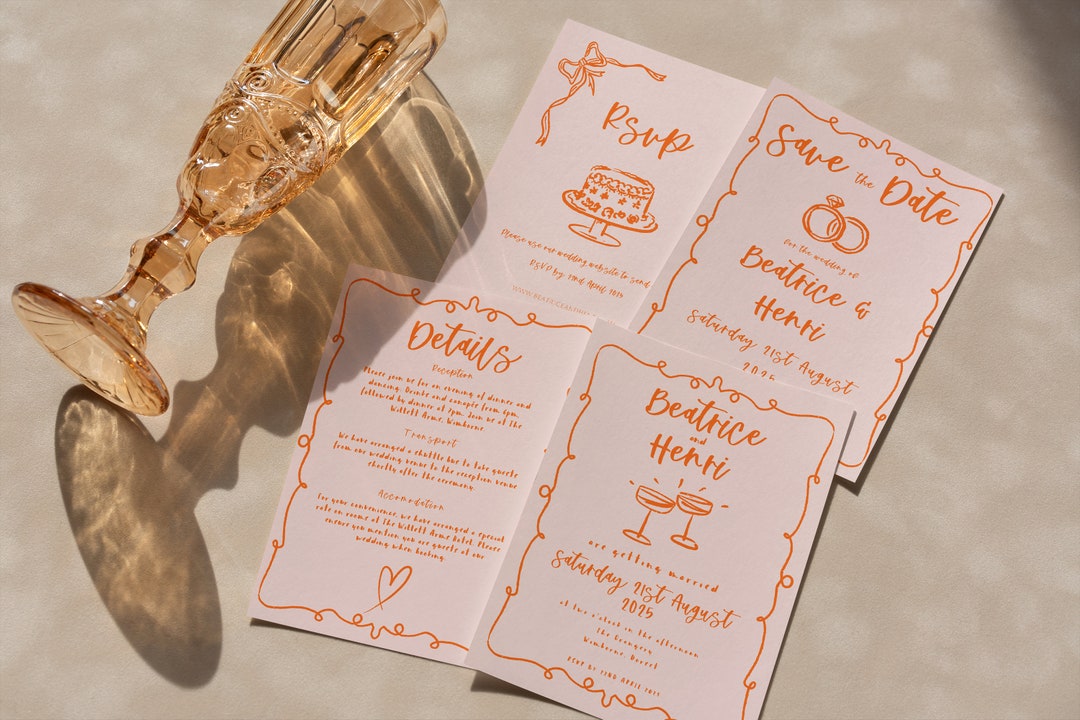 RSVP
Please use our wedding website to send
RSVP by: 22nd April 2025
Save the Date
For the wedding of
Beatrice &
Henri
Saturday 21st August
2025
Details
Reception
Please join us for an evening of dinner and
dancing. Drinks and canapés from 6pm,
followed by dinner at 7pm. Join us at The
Willett Arms, Wimborne.
Transport
We have arranged a shuttle bus to take guests
from our wedding venue to the reception venue
shortly after the ceremony.
Accomodation
For your convenience, we have arranged a special
rate on rooms at The Willett Arms Hotel. Please
ensure you mention you are guests at our
wedding when booking.
Beatrice
and
Henri
are getting married
Saturday 21st August
2025
at two o'clock in the afternoon
The Orangery
Wimborne, Dorset
RSVP BY 22ND APRIL 2025